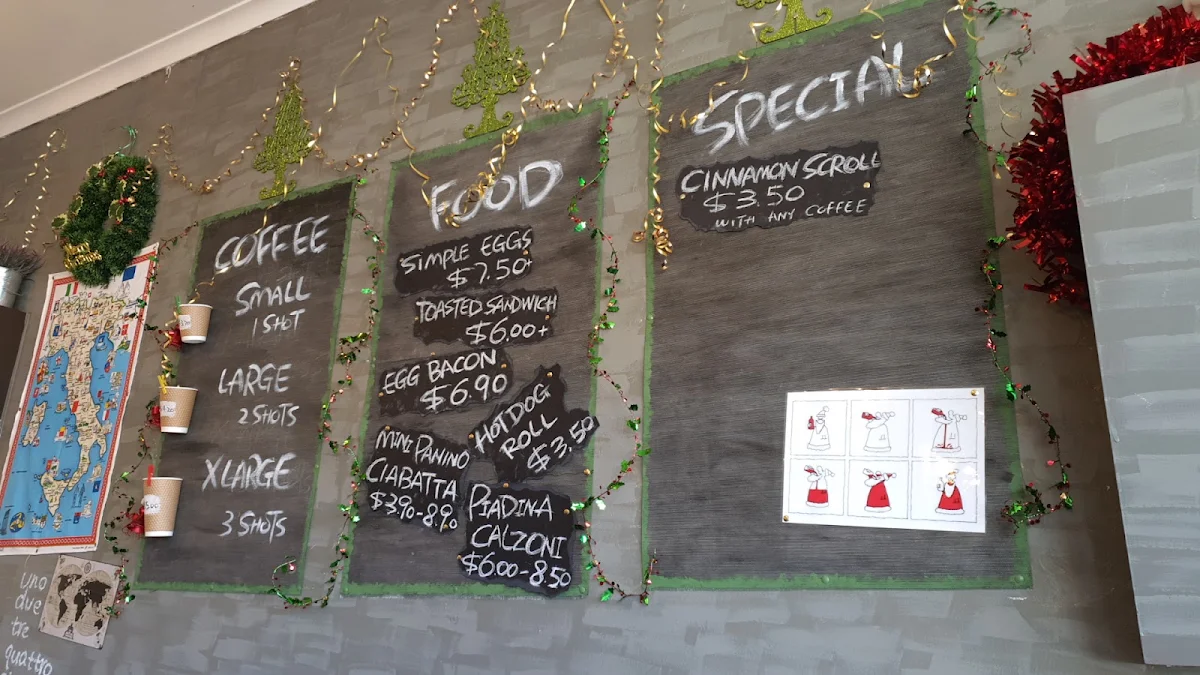 COFFEE
SMALL
1 SHOT
LARGE
2 SHOTS
X LARGE
3 SHOTS
FOOD
SIMPLE EGGS
$7.50+
TOASTED SANDWICH
$6.00+
EGG BACON
$6.90
HOTDOG
ROLL
$3.50
MINI PANINO
CIABATTA
$3.90-8.90
PIADINA
CALZONI
$6.00-8.50
SPECIAL
CINNAMON SCROLL
$3.50
WITH ANY COFFEE
uno
due
tre
quattro